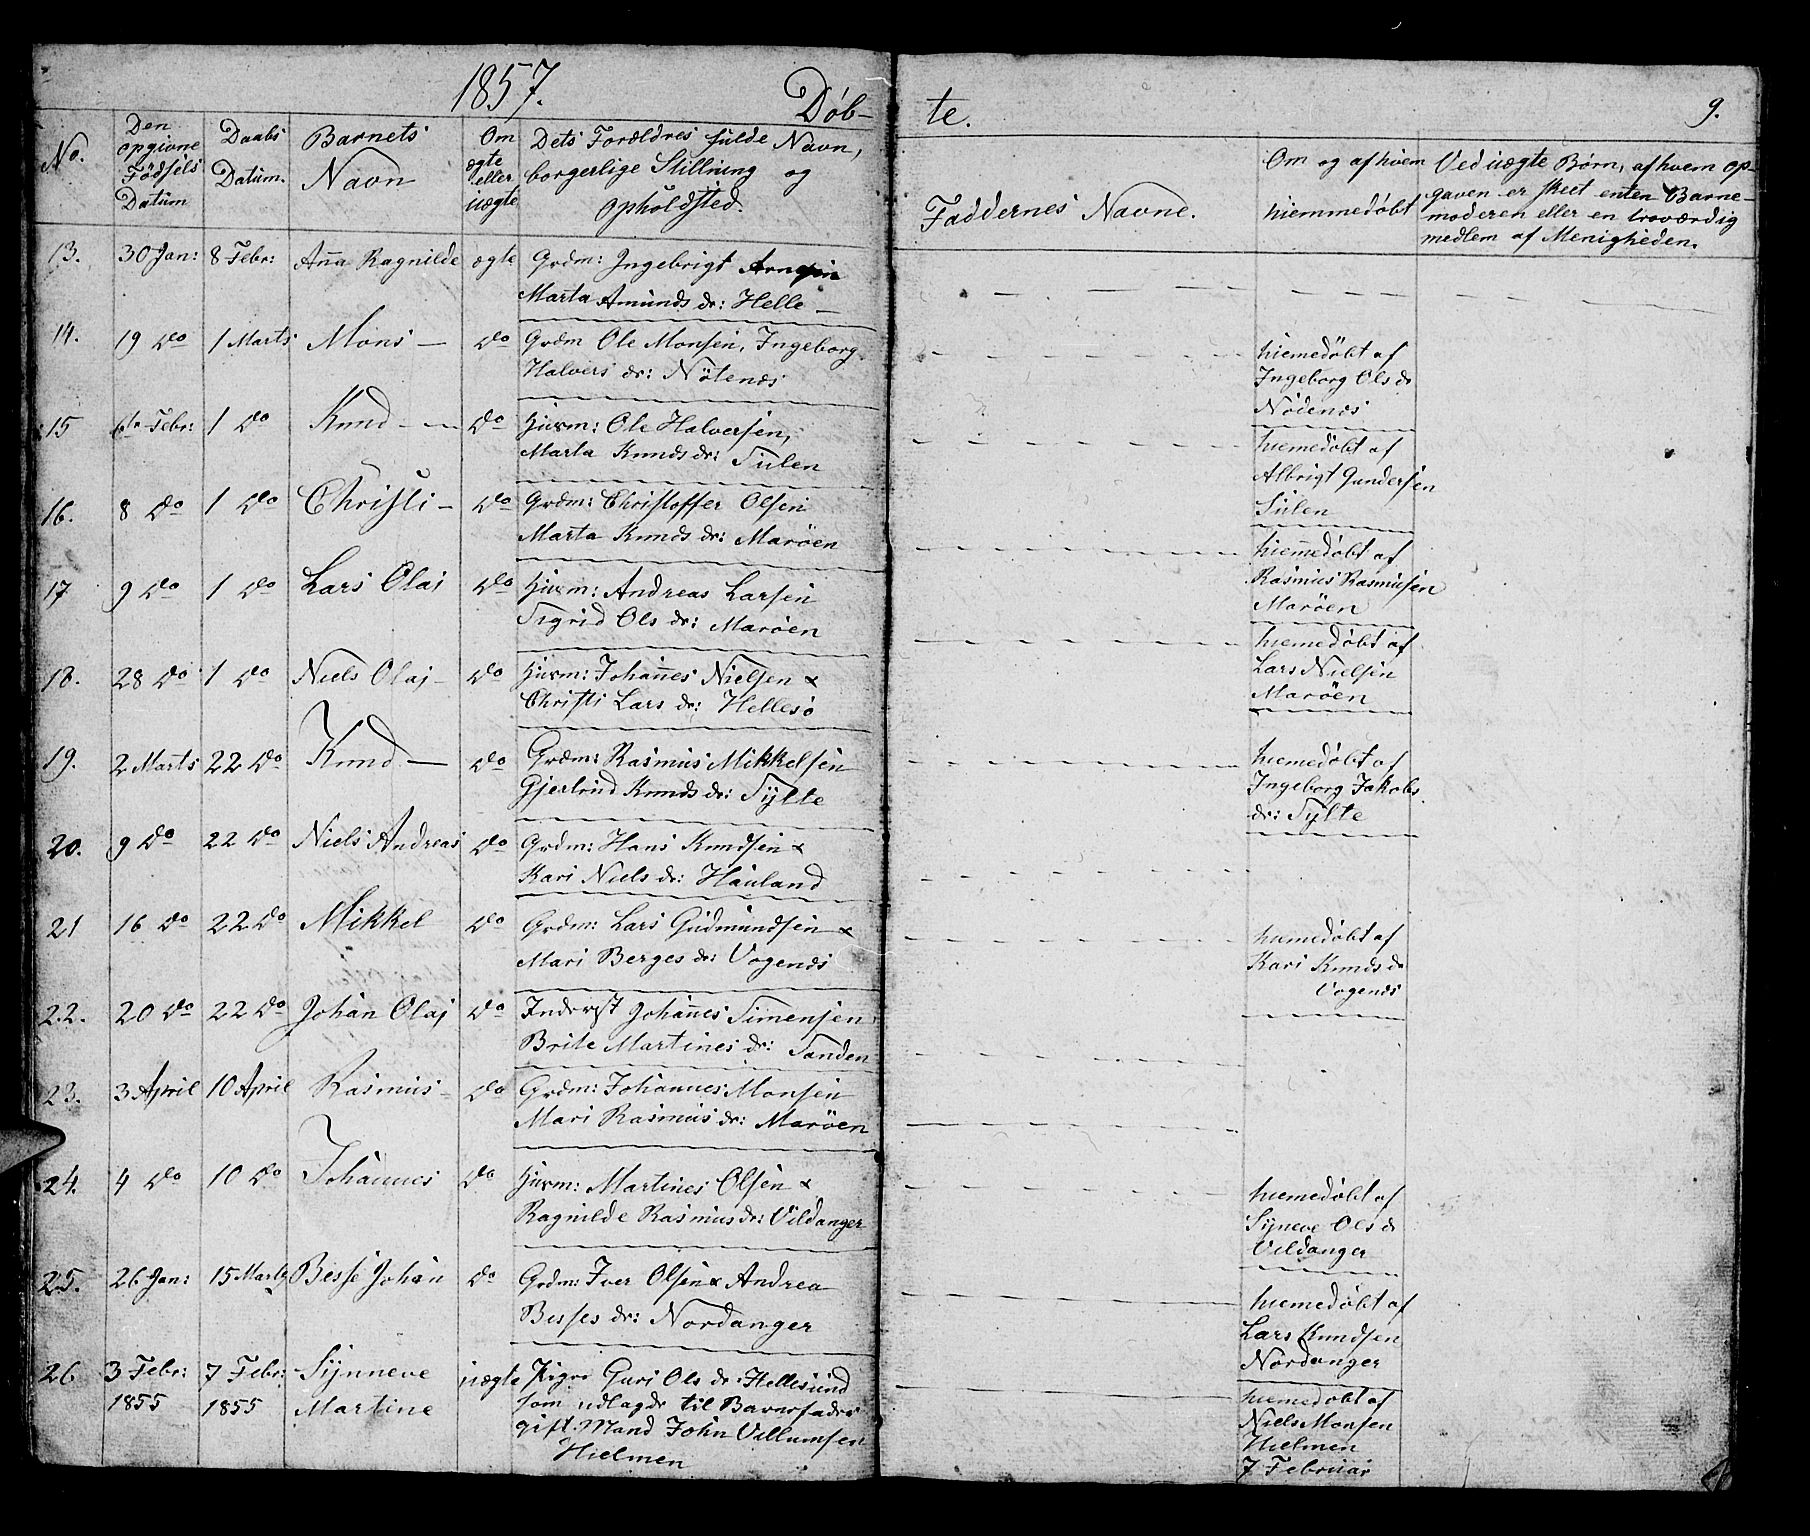 1857.
Døb-
te.
9.
No.
Den
opgivne
Fødsels
Datum
Daabs
Datum.
Barnets
Navn
Om
ægte
eller
uægte
Dets Forældres fulde Navn,
borgerlige Stillning og
Opholdsted.
Faddernes Navne.
Om og af hvem
hiemmedøbt
Ved uægte Børn, af hvem op-
gaven er skeet enten Barne-
moderen eller en troværdig
medlem af Menigheden.
13. 30 Jan: 8 Febr: Anna Ragnilde ægte Grdm: Ingebrigt Arnesen
Marta Amunds dr: Helle
14. 19 do 1 Marts Mons do Grdm Ole Monsen, Ingeborg
Halvers dr: Nötenes
hiemedöbt af
Ingeborg Ols dr
Nödenes
15 6te Febr: 1 do Knud do Huusm: Ole Halversen,
Marta Knuds dr: Sulen
hiemedöbt af
Albrigt Gundersen
Sulen
16. 8 do 1 do Christi do Grdm: Christoffer Olsen
Marta Knuds dr: Maröen
hiemedöbt af
Rasmus Rasmusen
Maröen
17 9 do 1 do Lars Olai do Huusm: Andreas Larsen
Sigrid Ols dr: Maröen
hiemedöbt af
Lars Nielsen
Maröen
18. 28 do 1 do Niels Olaj do Huusm: Johannes Nielsen &
Christi Lars dr: Hellesö
19. 2 Marts 22 do Knud do Grdm: Rasmus Mikkelsen
Gjertrud Knuds dr: Sylte
hiemedöbt af
Ingeborg Jakobs
dr: Sylte
20. 9 do 22 do Niels Andreas do Grdm: Hans Knudsen &
Kari Niels dr: Hauland
21 16 do 22 do Mikkel do Grdm: Lars Gudmundsen &
Mari Berges dr: Vogenes
hiemedöbt af
Kari Knuds dr
Vogenes
22. 20 do 22 do Johan Olaj do Inderst Johannes Simensen
Brite Martines dr: Sanden
23. 3 April 10 April Rasmus do Grdm: Johannes Monsen
Mari Rasmus dr: Maröen
24. 4 do 10 do Johannes do Huusm: Martines Olsen &
Ragnilde Rasmus dr: Vildanger
hiemedöbt af
Syneve Ols dr
Vildanger
25. 26 Jan: 15 Marts Besse Johan do Grdm: Iver Olsen & Andrea
Besses dr: Nordanger
hiemedöbt af
Lars Knudsen
Nordanger
26 3 Febr: 7 Febr: Synneve uægte Pigen Guri Ols dr: Hellesund
1855 1855 Martine som udlagde til Barnefader
gift Mand John Villumsen
Hielmen
hiemedöbt af
Niels Monsen
Hielmen
7 Februar